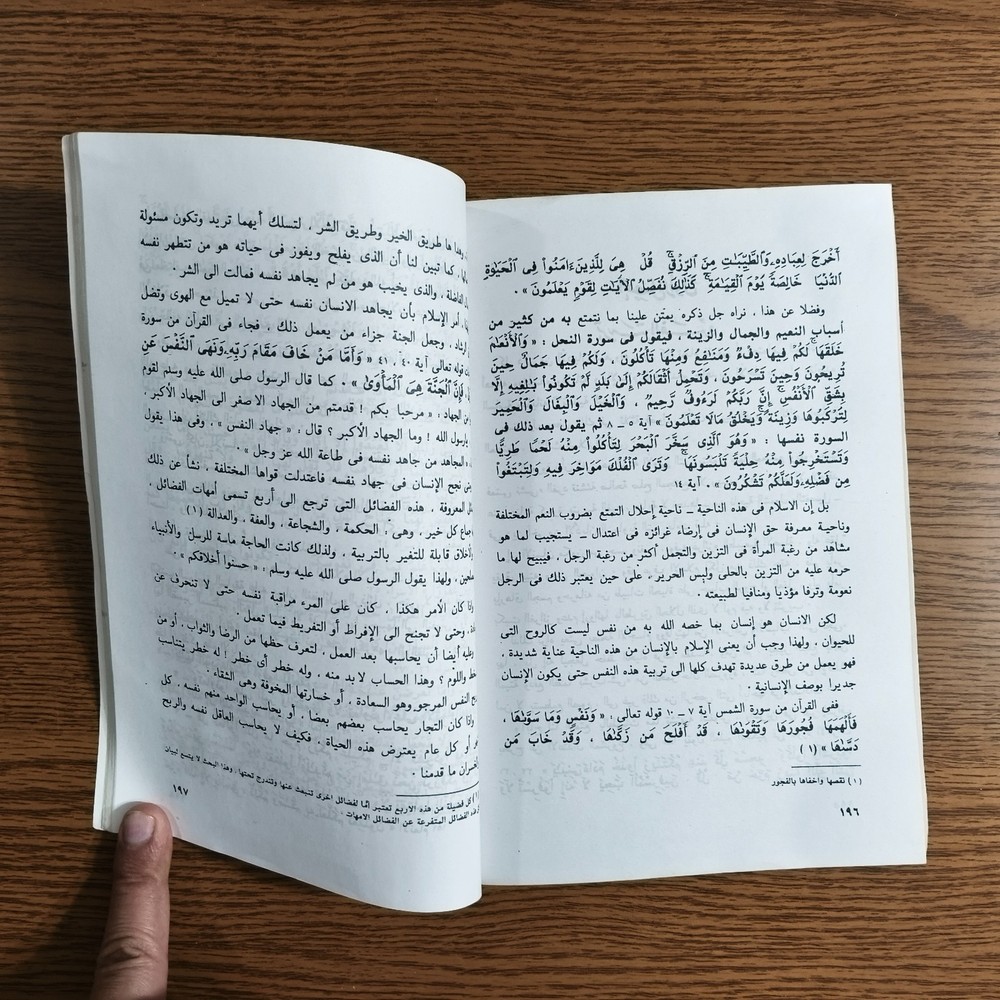 أَخْرَجَ لِعِبَادِهِۦ وَٱلطَّيِّبَـٰتِ مِنَ ٱلرِّزْقِ ۚ قُلْ هِىَ لِلَّذِينَ ءَامَنُوا۟ فِى ٱلْحَيَوٰةِ
ٱلدُّنْيَا خَالِصَةً يَوْمَ ٱلْقِيَـٰمَةِ ۗ كَذَٰلِكَ نُفَصِّلُ ٱلْأَيَـٰتِ لِقَوْمٍ يَعْلَمُونَ » .
وفضلا عن هذا ، نراه جل ذكره يمتن علينا بما نتمتع به من كثير من
أسباب النعيم والجمال والزينة ، فيقول فى سورة النحل : « وَٱلْأَنْعَـٰمَ
خَلَقَهَا ۗ لَكُمْ فِيهَا دِفْءٌ وَمَنَـٰفِعُ وَمِنْهَا تَأْكُلُونَ ، وَلَكُمْ فِيهَا جَمَالٌ حِينَ
تُرِيحُونَ وَحِينَ تَسْرَحُونَ ، وَتَحْمِلُ أَثْقَالَكُمْ إِلَىٰ بَلَدٍ لَّمْ تَكُونُوا۟ بَـٰلِغِيهِ إِلَّا
بِشِقِّ ٱلْأَنفُسِ ۚ إِنَّ رَبَّكُمْ لَرَءُوفٌ رَّحِيمٌ ، وَٱلْخَيْلَ وَٱلْبِغَالَ وَٱلْحَمِيرَ
لِتَرْكَبُوهَا وَزِينَةً ۚ وَيَخْلُقُ مَالَا تَعْلَمُونَ » آية ٥ ــ ٨ ثم يقول بعد ذلك فى
السورة نفسها : « وَهُوَ ٱلَّذِى سَخَّرَ ٱلْبَحْرَ لِتَأْكُلُوا۟ مِنْهُ لَحْمًا طَرِيًّا
وَتَسْتَخْرِجُوا۟ مِنْهُ حِلْيَةً تَلْبَسُونَهَا ۖ وَتَرَى ٱلْفُلْكَ مَوَاخِرَ فِيهِ وَلِتَبْتَغُوا۟
مِن فَضْلِهِۦ وَلَعَلَّكُمْ تَشْكُرُونَ » . آية ١٤
بل إن الاسلام فى هذه الناحية ــ ناحية إحلال التمتع بضروب النعم المختلفة
وناحية معرفة حق الإنسان فى إرضاء غرائزه فى اعتدال ــ يستجيب لما هو
مشاهد من رغبة المرأة فى التزين والتجمل أكثر من رغبة الرجل ، فيبيح لها ما
حرمه عليه من التزين بالحلى ولبس الحرير ، على حين يعتبر ذلك فى الرجل
نعومة وترفا مؤذيا ومنافيا لطبيعته .
لكن الانسان هو إنسان بما خصه الله به من نفس ليست كالروح التى
للحيوان ، ولهذا وجب أن يعنى الإسلام بالإنسان من هذه الناحية عناية شديدة ،
فهو يعمل من طرق عديدة تهدف كلها الى تربية هذه النفس حتى يكون الإنسان
جديرا بوصف الإنسانية .
ففى القرآن من سورة الشمس آية ٧ ــ ١٠ قوله تعالى : « وَنَفْسٍ وَمَا سَوَّىٰهَا ،
فَأَلْهَمَهَا فُجُورَهَا وَتَقْوَىٰهَا ، قَدْ أَفْلَحَ مَن زَكَّىٰهَا ، وَقَدْ خَابَ مَن
دَسَّىٰهَا » (١)
(١) نقصها واخفاها بالفجور
١٩٦
ها طريق الخير وطريق الشر ، لتسلك أيهما تريد وتكون مسئولة
، كما تبين لنا أن الذى يفلح ويفوز فى حياته هو من تتطهر نفسه
الفاضلة ، والذى يخيب هو من لم يجاهد نفسه فمالت الى الشر .
، أمر الإسلام بأن يجاهد الانسان نفسه حتى لا تميل مع الهوى وتضل
، وجعل الجنة جزاء من يعمل ذلك ، فجاء فى القرآن من سورة
قوله تعالى آية ٤٠ ، ٤١ « وَأَمَّا مَنْ خَافَ مَقَامَ رَبِّهِۦ وَنَهَى ٱلنَّفْسَ عَنِ
فَإِنَّ ٱلْجَنَّةَ هِىَ ٱلْمَأْوَىٰ » . كما قال الرسول صلى الله عليه وسلم لقوم
من الجهاد : « مرحبا بكم ! قدمتم من الجهاد الاصغر الى الجهاد الأكبر .
يارسول الله ! وما الجهاد الأكبر ؟ قال : « جهاد النفس » ، وفى هذا يقول
المجاهد من جاهد نفسه فى طاعة الله عز وجل » .
نجح الإنسان فى جهاد نفسه فاعتدلت قواها المختلفة ، نشأ عن ذلك
المعروفة ، هذه الفضائل التى ترجع الى أربع تسمى أمهات الفضائل ،
جماع كل خير ، وهى : الحكمة ، والشجاعة ، والعفة ، والعدالة (١)
والأخلاق قابلة للتغير بالتربية ، ولذلك كانت الحاجة ماسة للرسل والأنبياء
، ولهذا يقول الرسول صلى الله عليه وسلم : « حسنوا أخلاقكم » .
وإذا كان الأمر هكذا ، كان على المرء مراقبة نفسه حتى لا تنحرف عن
، وحتى لا تجنح الى الإفراط أو التفريط فيما تعمل .
وعليه أيضا أن يحاسبها بعد العمل ، لتعرف حظها من الرضا والثواب ، أو من
واللوم ؟ وهذا الحساب لا بد منه ، وله خطر أى خطر ! له خطر يتناسب
النفس المرجو وهو السعادة ، أو خسارتها المخوفة وهى الشقاء .
وإذا كان التجار يحاسب بعضهم بعضا ، أو يحاسب الواحد منهم نفسه ، كل
أو كل عام يعترض هذه الحياة ، فكيف لا يحاسب العاقل نفسه والربح
والخسران ما قدمنا .
(١) كل فضيلة من هذه الاربع تعتبر أمّا لفضائل اخرى تنبعث عنها وتندرج تحتها ، وهذا البحث لا يتسع لبيان
هذه الفضائل المتفرعة عن الفضائل الامهات .
١٩٧